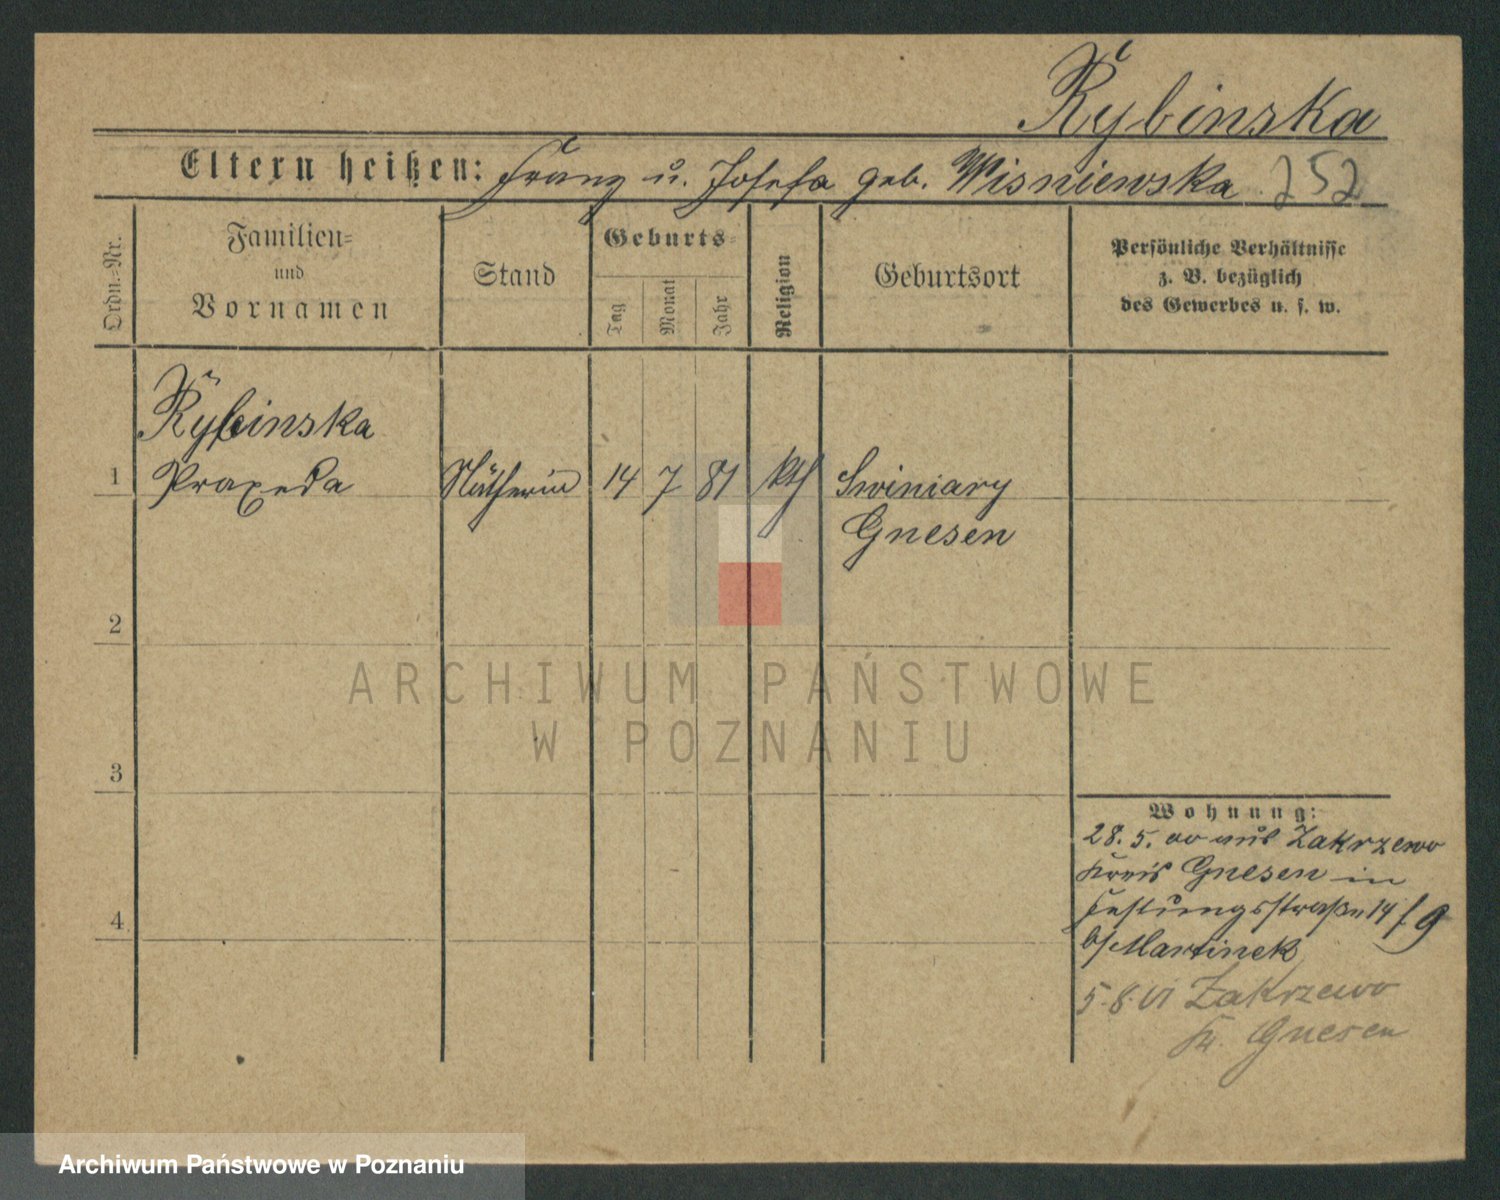 Rybinska
Eltern heißen: Franz u. Josefa geb. Wisniewska 252
Ordn.=Nr.
Familien=
und
Vornamen
Stand
Geburts=
Tag
Monat
Jahr
Religion
Geburtsort
Persönliche Verhältnisse
z. B. bezüglich
des Gewerbes u. s. w.
Rybinska
1 Praxeda Nätherin 14 7 81 kth Swiniary
Gnesen
2
ARCHIWUM PAŃSTWOWE
W POZNANIU
3
Wohnung:
28. 5. 00 aus Zakrzewo
Kreis Gnesen in
Festungsstraße 14
4
b/ Martinek
5.8. Zakrzewo
Kr. Gnesen
Archiwum Państwowe w Poznaniu